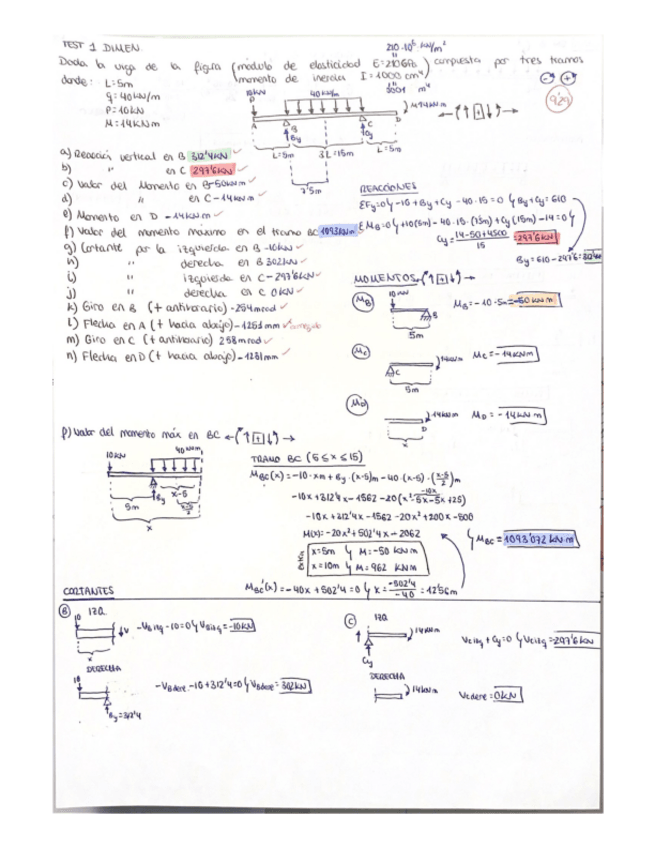 TEST 1 DIMEN
210·10⁶ kN/m²
Dada la viga de la figura (módulo de elasticidad E=210GPa) compuesta por tres tramos
(momento de inercia I=1000 cm⁴)
donde: L=5m
q=40kN/m
P=10kN
M=14kNm
10kN
P
40kN/m
M=14kNm
A
B
By
C
Cy
D
L=5m
3L=15m
L=5m
7'5m
9'29
a) Reacción vertical en B 312'4kN
b) " en C 297'6kN
c) Valor del Momento en B -50kNm
d) " en C -14kNm
e) Momento en D -14kNm
f) Valor del momento máximo en el tramo BC 1093kNm
g) Cortante por la izquierda en B -10kN
h) " derecha en B 302kN
i) " izquierda en C -297'6kN
j) " derecha en C 0kN
k) Giro en B (+ antihorario) -254mrad
l) Flecha en A (+ hacia abajo) -1251mm
m) Giro en C (+ antihorario) 258mrad
n) Flecha en D (+ hacia abajo) -1281mm
REACCIONES
ΣFy=0 -10+By+Cy-40·15=0 By+Cy=610
ΣMB=0 +10(5m)-40·15·(7'5m)+Cy(15m)-14=0
Cy=(14-50+4500)/15=297'6kN
By=610-297'6=312'4kN
MOMENTOS
MB
10kN
B
5m
MB=-10·5m=-50kNm
MC
C
14kNm
5m
MC=-14kNm
MD
14kNm
D
x
MD=-14kNm
f) Valor del momento máx en BC
10kN
40kN/m
5m
By
x-5
(x-5)/2
x
TRAMO BC (5≤x≤15)
MBC(x)=-10·xm+By·(x-5)m-40·(x-5)·((x-5)/2)m
-10x+312'4x-1562-20(x²-5x-5x+25)
-10x
-10x+312'4x-1562-20x²+200x-500
M(x)=-20x²+502'4x-2062
MBC=1093'072kN·m
x=5m M=-50 kNm
x=10m M=962 kNm
MBC'(x)=-40x+502'4=0 x=-502'4/-40=12'56m
CORTANTES
B
IZQ.
10
V
x
-VBizq-10=0 VBizq=-10kN
DERECHA
10
By=312'4
-VBdere-10+312'4=0 VBdere=302kN
C
IZQ
14kNm
Cy
VCizq+Cy=0 VCizq=-297'6kN
DERECHA
14kNm
VCdere=0kN